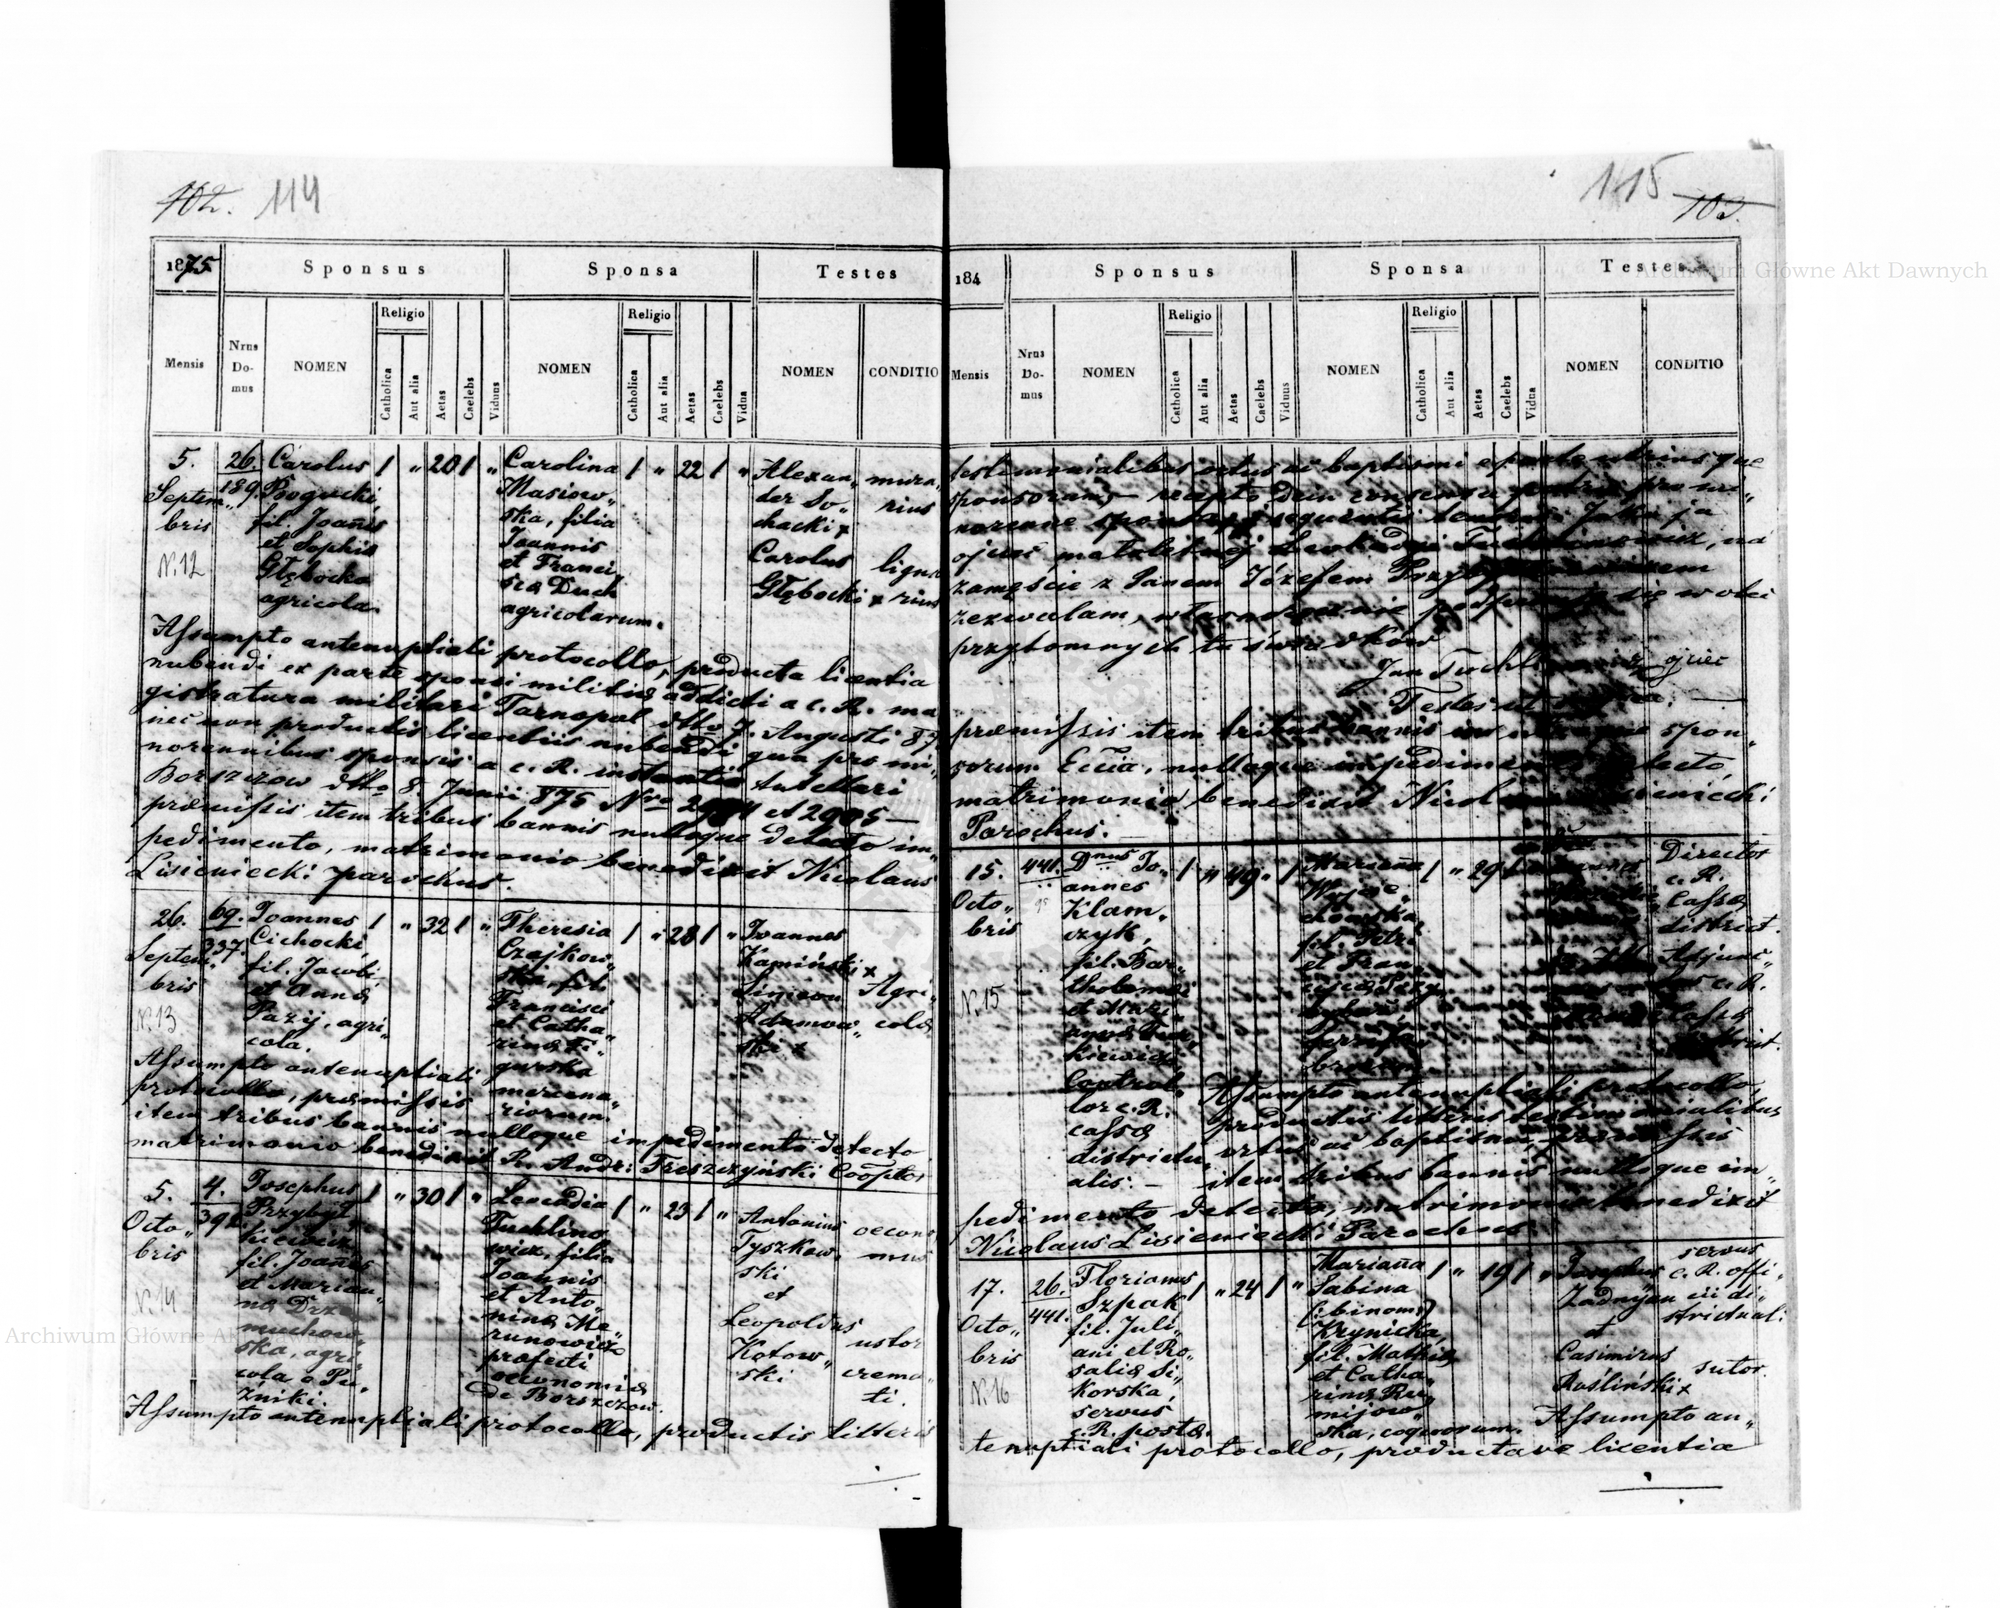 102. 114
1875
Sponsus
Sponsa
Testes
Mensis
Nrus Do- mus
NOMEN
Religio
Catholica
Aut alia
Aetas
Caelebs
Viduus
NOMEN
Religio
Catholica
Aut alia
Aetas
Caelebs
Vidua
NOMEN
CONDITIO
5. Septem„ bris
N. 12
26. 189.
Carolus
fil. Joannis
et Sophiæ
Głębocka
agricola
/ „ 20 / „
Carolina
Masiow„
ska, filia
Joannis
et Franci
scæ Duch
agricolarum.
/ „ 22 / „
Alexan„
der So„
chacki x
Carolus
Głębocki x
mura„
rius
ligna
rius
Assumpto antenuptiali protocollo, producta licentia
nubendi ex parte sponsi militiæ addicti a c. R. ma
gistratura militari Tarnopol dtto 7. Augusti 87
nec non productis licentiis nubendi qua pro mi„
norennibus sponsis a c. R. instantia tutellari
Borszczow dtto 8. Junii 875 Nro et 2905 —
præmissis item tribus bannis nulloque detecto im„
pedimento, matrimonio benedixit Nicolaus
Lisieniecki parochus.
26. Septem. bris
N. 13
69. 337.
Joannes
Cichocki,
fil. Jacobi
et Annæ
Pazij, agri„
cola.
/ „ 32 / „
Theresia
Czajkow„
ska, fil.
Francisci
et Catha„
rinæ Fi„
gurska
mercena„
riorum.
/ „ 28 / „
Joannes
Kamiński x
Simeon
Adamow„
ski x
Agri„
colæ
Assumpto antenuptiali
protocollo, præmissis
item tribus bannis nulloque impedimento detecto
matrimonio benedixit R. Andr: Treszczyński Coōptor
5. Octo„ bris
N. 14
4. 392.
Josephus
Przybył„
kiewicz,
fil. Joannis
et Marian„
næ Drze
muchow„
ska, agri„
cola e Pu„
źniki.
/ „ 30 / „
Leocadia
Tuchlino
wicz, filia
Joannis
et Anto„
ninæ Me„
runowicz
præfecti
oeconomiæ
de Borszczow.
/ „ 23 / „
Antonius
Tyszkow„
ski
et
Leopoldus
Kotow„
ski
oecono
mus
ustor
crema„
ti.
Assumpto antenuptiali protocollo, productis litteris
115 103.
184
Sponsus
Sponsa
Testes
Mensis
Nrus Do- mus
NOMEN
Religio
Catholica
Aut alia
Aetas
Caelebs
Viduus
NOMEN
Religio
Catholica
Aut alia
Aetas
Caelebs
Vidua
NOMEN
CONDITIO
testimonialibus ortus ac baptismi ex parte utriusque
sponsorum, — recepto dein consensu patris pro mi„
norenne sponsa sequentis tenoris: Jako ja
ojciec małoletniej Leokadyi na
zamęście z Panem Józefem
zezwalam, własnoręcznie podpisuję się w obec
przytomnych tu świadków
Jan ojciec
Testes ut
præmissis item tribus bannis in spon„
sorum Eccia, nulloque impedimento detecto,
matrimonio benedixit Nicolaus Lisieniecki
Parochus. —
15. Octo„ bris
N. 15
441.
Dnus Jo„
annes
Klam„
czyk,
fil. Bar„
tholomæi
et Mari„
annæ
Control„
lor c. R.
cassæ
districtu„
alis. —
/ „ 49 „ /
Marianna
fil. Petri
et Fran„
/ „ 29 /
Director
c. R.
Cassæ
district.
Adjunc„
tus c. R.
Cassæ
district.
Assumpto antenuptiali protocollo,
productis litteris testimonialibus
ortus ac baptismi, præmissis
item tribus bannis nulloque im„
pedimento detecto, matrimonio benedixit
Nicolaus Lisieniecki Parochus.
17. Octo„ bris
N. 16
26. 441.
Florianus
Szpak
fil. Juli„
ani et Ro„
saliæ Si„
korska,
servus
c. R. postæ.
/ „ 24 / „
Marianna
Sabina
(binom.)
Krynicka,
fil. Mathiæ
et Catha„
rinæ Ru„
mijow„
ska, coquorum.
/ „ 19 / „
Josephus
Zadnyan
et
Casimirus
Rośliński x
servus
c. R. offi„
cii di„
strictuali.
sutor.
Assumpto an„
tenuptiali protocollo, productave licentia
Archiwum Główne Akt Dawnych
Archiwum Główne Akt Dawnych